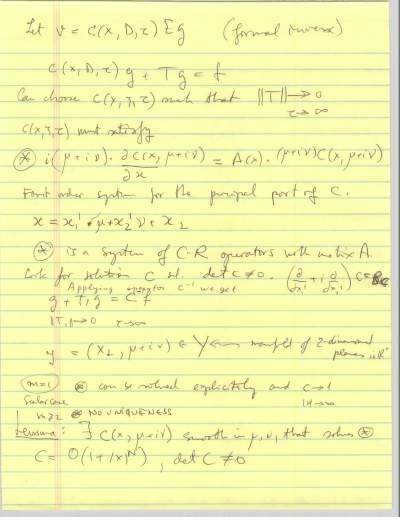 Let v = C(x, D, τ) E g (formal inverse)
C(x, D, τ) g + T g = f
Can choose C(x, ζ, τ) such that ‖T‖ → 0
τ → ∞
C(x, ζ, τ) must satisfy
⊛ i(μ + iν) · ∂C(x, μ+iν)/∂x = A(x) · (μ+iν) C(x, μ+iν)
First order system for the principal part of C.
x = x₁' μ + x₂' ν + x⊥
⊛ is a system of C-R operators with matrix A.
Look for solution C s.t. det C ≠ 0. (∂/∂x₁' + i ∂/∂x₂') C = BC
Applying operator C⁻¹ we get
g + T₁ g = C f
‖T₁‖ → 0 τ → ∞
y = (x⊥, μ+iν) ∈ Y manifold of 2-dimensional planes in
m=1 ⊛ can be solved explicitely and C → 1
Scalar case |x| → ∞
m ≥ 2 ⊛ NO UNIQUENESS
Lemma: ∃ C(x, μ+iν) smooth in μ, ν, that solves ⊛
C = O(1+|x|ᴺ), det C ≠ 0